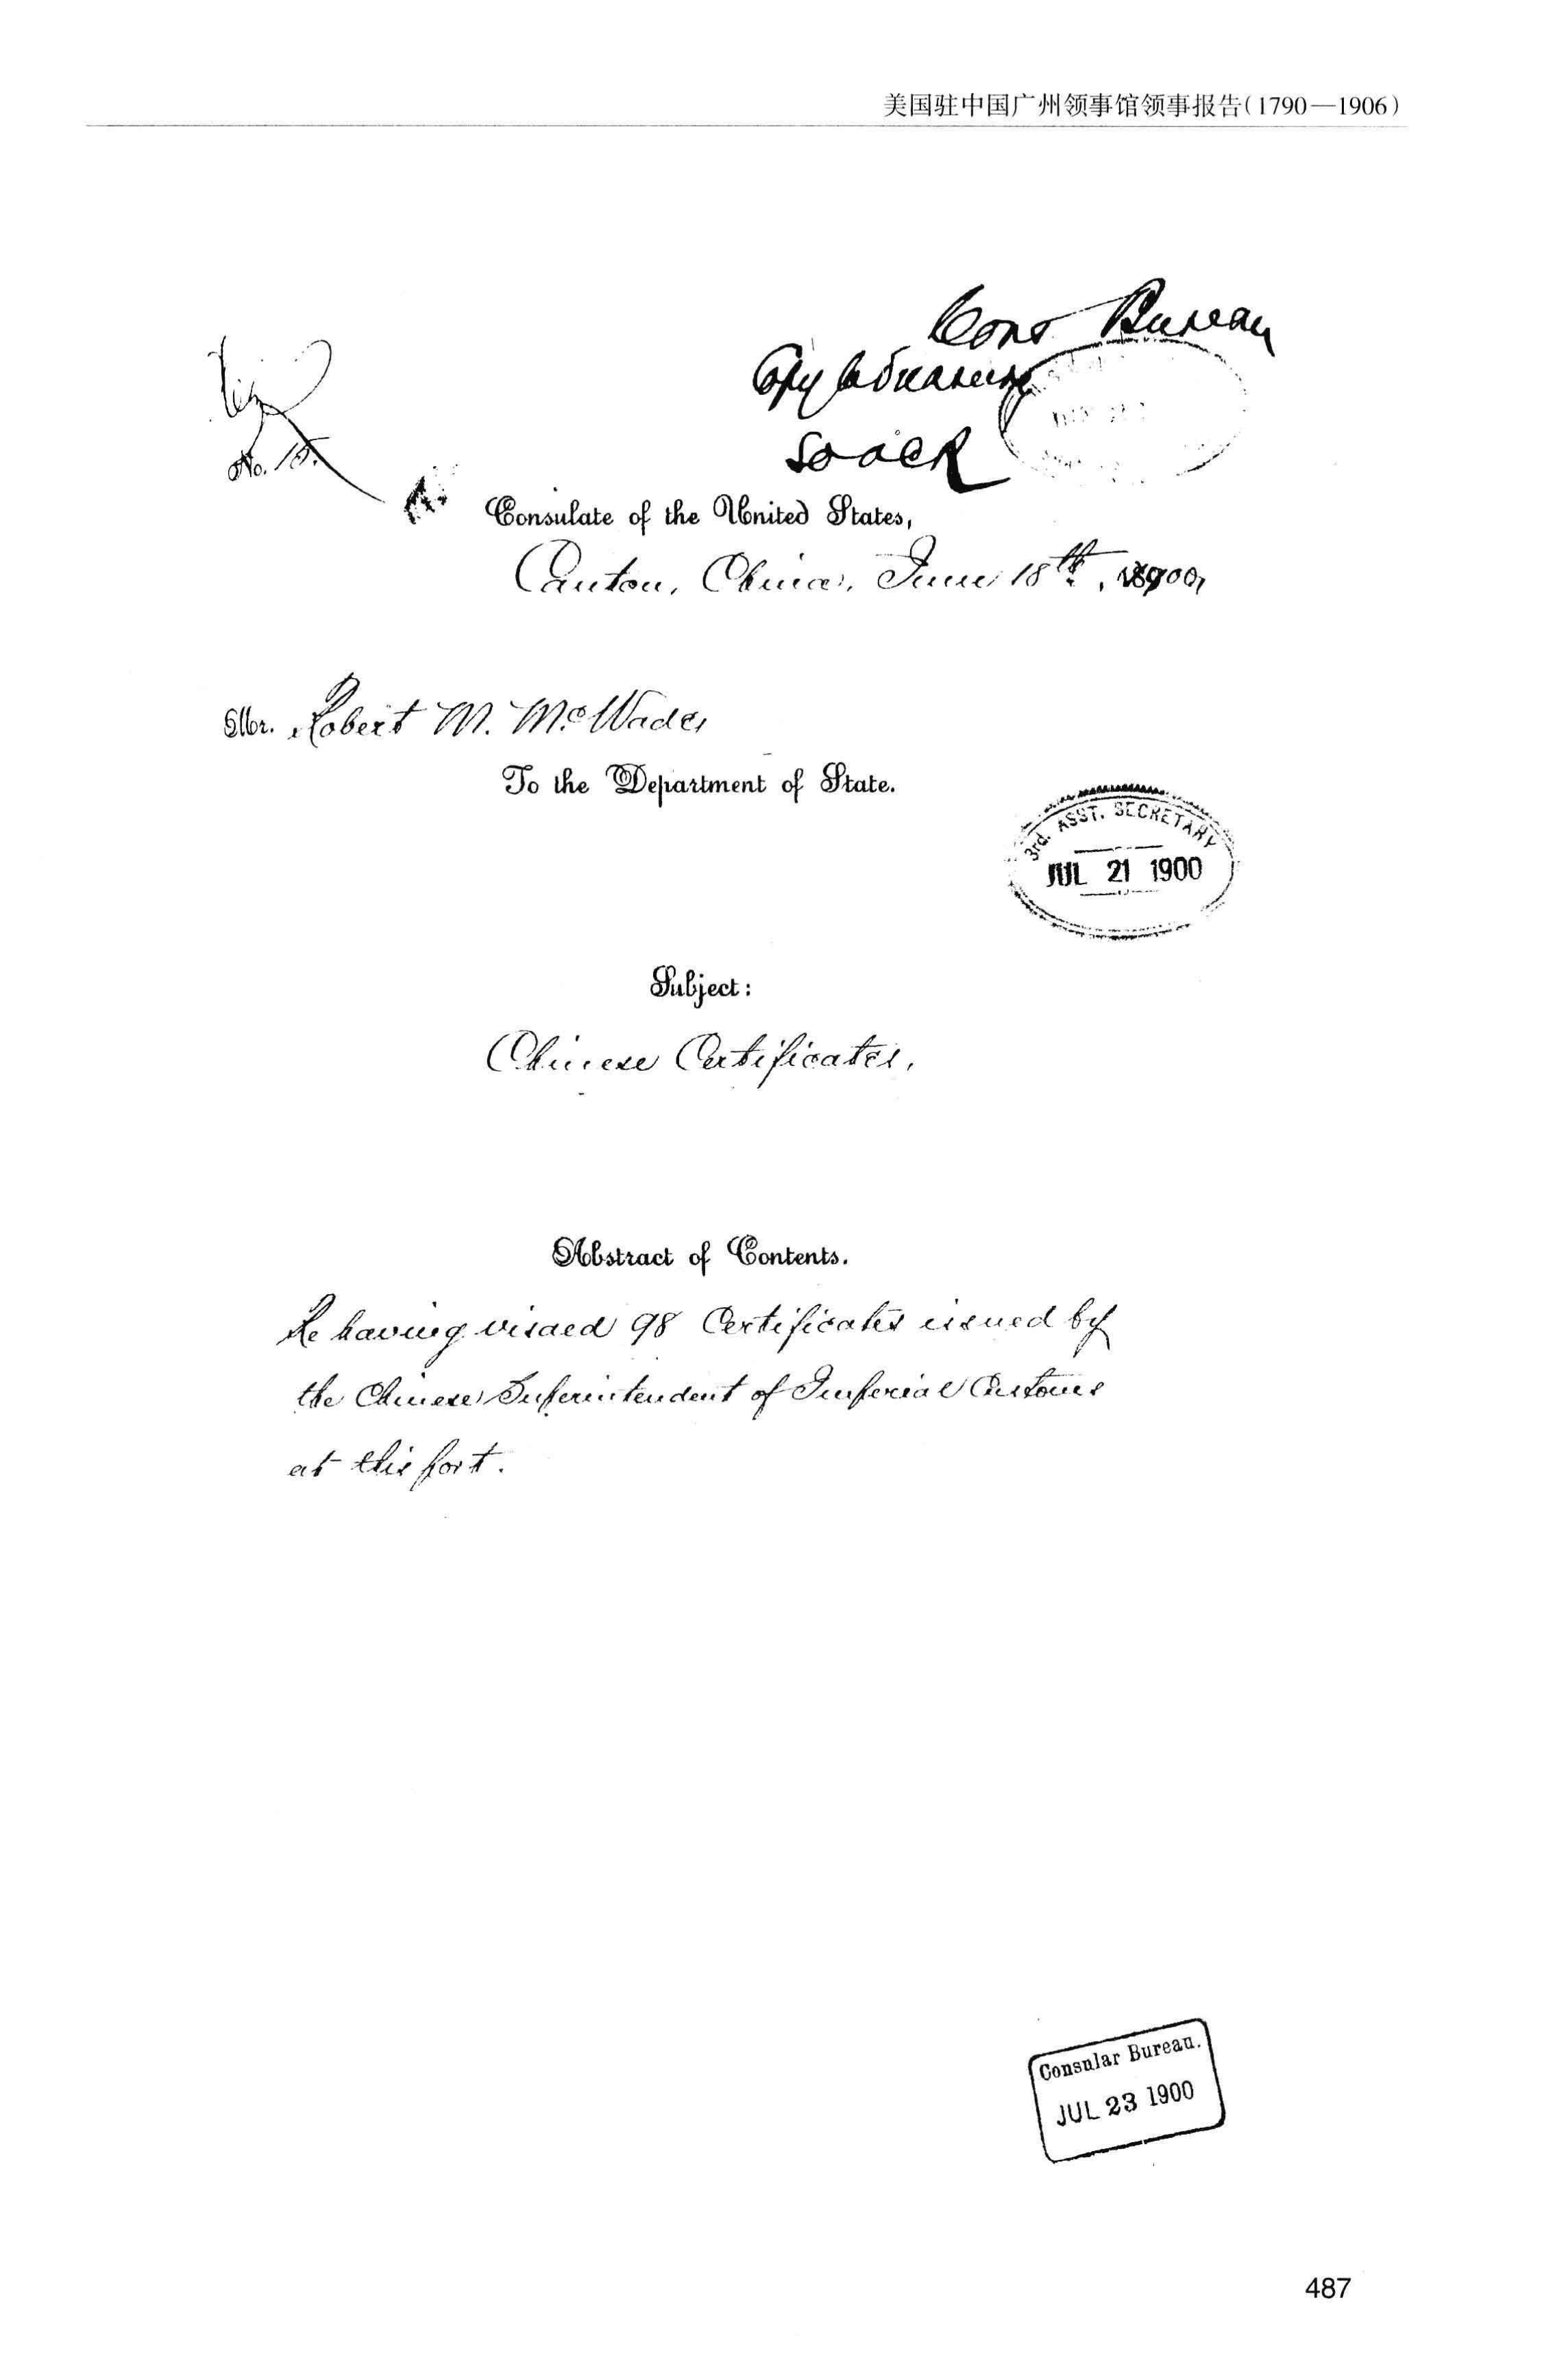 美国驻中国广州领事馆领事报告(1790—1906)
Cons Bureau
Copy to Treasury
so ack
No. 15.
Consulate of the United States,
Canton, China, June 18th, 1900,
Mr. Robert M. McWade,
To the Department of State.
3rd. ASST. SECRETARY
JUL 21 1900
Subject:
Chinese Certificates.
Abstract of Contents.
Re having visaed 98 Certificates issued by
the Chinese Superintendent of Imperial Customs
at this port.
Consular Bureau.
JUL 23 1900
487